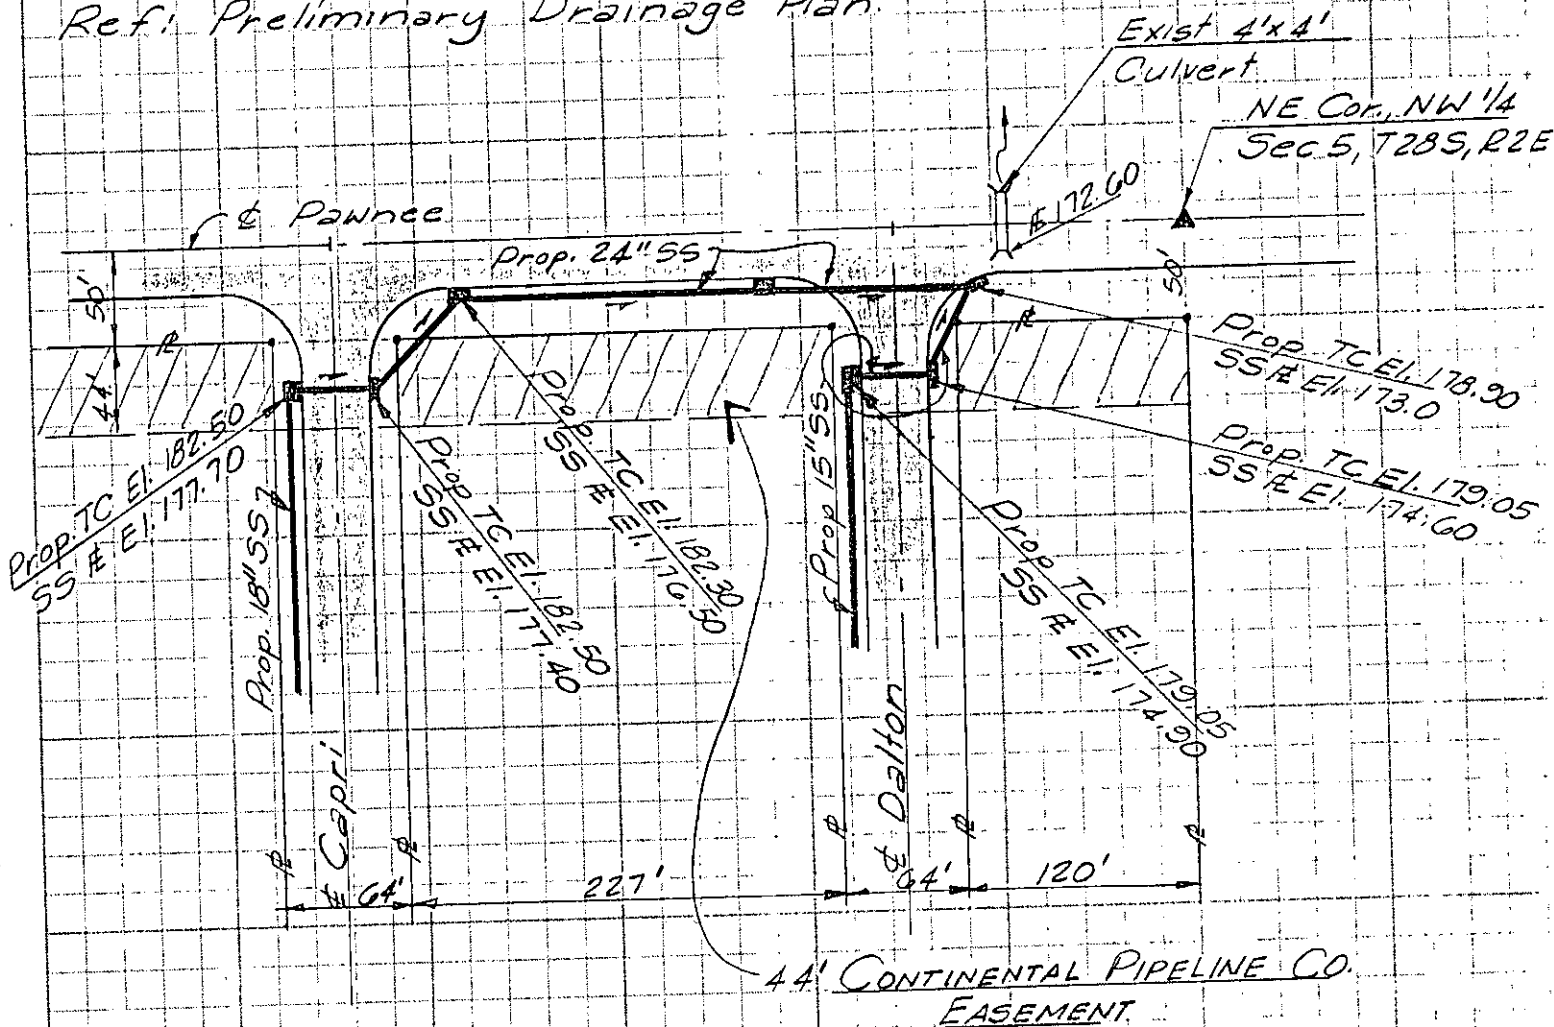 Ref: Preliminary Drainage Plan.
Exist 4'x4'
Culvert
NE Cor., NW 1/4
Sec 5, T28S, R2E
℄ Pawnee
Prop. 24" SS
172.60
50'
50'
44'
Prop. TC El. 182.50
SS ℄ El. 177.70
Prop. 18" SS
Prop TC El. 182.50
SS ℄ El. 177.40
Prop TC El. 182.30
SS ℄ El. 176.50
Prop 15" SS
Prop. TC El. 178.90
SS ℄ El. 173.0
Prop. TC El. 179.05
SS ℄ El. 174.60
Prop TC El. 179.05
SS ℄ El. 174.90
℄ Capri
℄ Dalton
64'
227'
64'
120'
44' CONTINENTAL PIPELINE CO.
EASEMENT